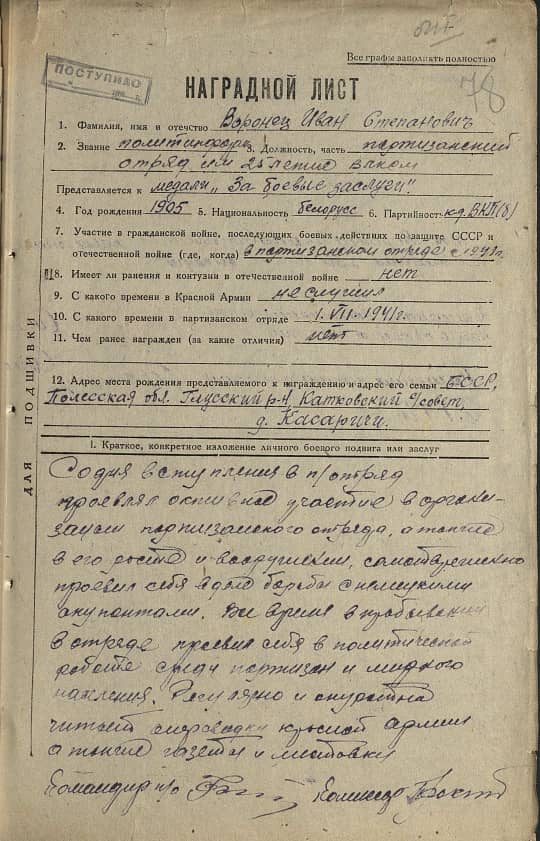 Все графы заполнять полностью
ПОСТУПИЛО
78
НАГРАДНОЙ ЛИСТ
1. Фамилия, имя и отчество Воронец Иван Степанович
2. Звание политинформ. 3. Должность, часть партизанский
отряд им 25 летие влксм
Представляется к медали „За боевые заслуги".
4. Год рождения 1905 5. Национальность белорусс 6. Партийность к-д. ВКП(б)
7. Участие в гражданской войне, последующих боевых действиях по защите СССР и
отечественной войне (где, когда) в партизанском отряде с 1941 г.
8. Имеет ли ранения и контузии в отечественной войне нет
9. С какого времени в Красной Армии не служил
10. С какого времени в партизанском отряде 1. VII - 1941 г.
11. Чем ранее награжден (за какие отличия) нет
12. Адрес места рождения представляемого к награждению и адрес его семьи БССР,
Полесская обл. Глусский р-н Катковский с/совет,
д. Касаричи.
ДЛЯ ПОДШИВКИ
I. Краткое, конкретное изложение личного боевого подвига или заслуг
Со дня вступления в п/отряд
проявлял активное участие в органи-
зации партизанского отряда, а также
в его росте и вооружении,
проявил себя в деле борьбы с немецкими
окупантами. Все время в пребывании
в отряде проявил себя в политической
работе среди партизан и
населения. Регулярно и акуратно
читает сводки красной армии
а также газеты и листовки
Командир п/о Комиссар